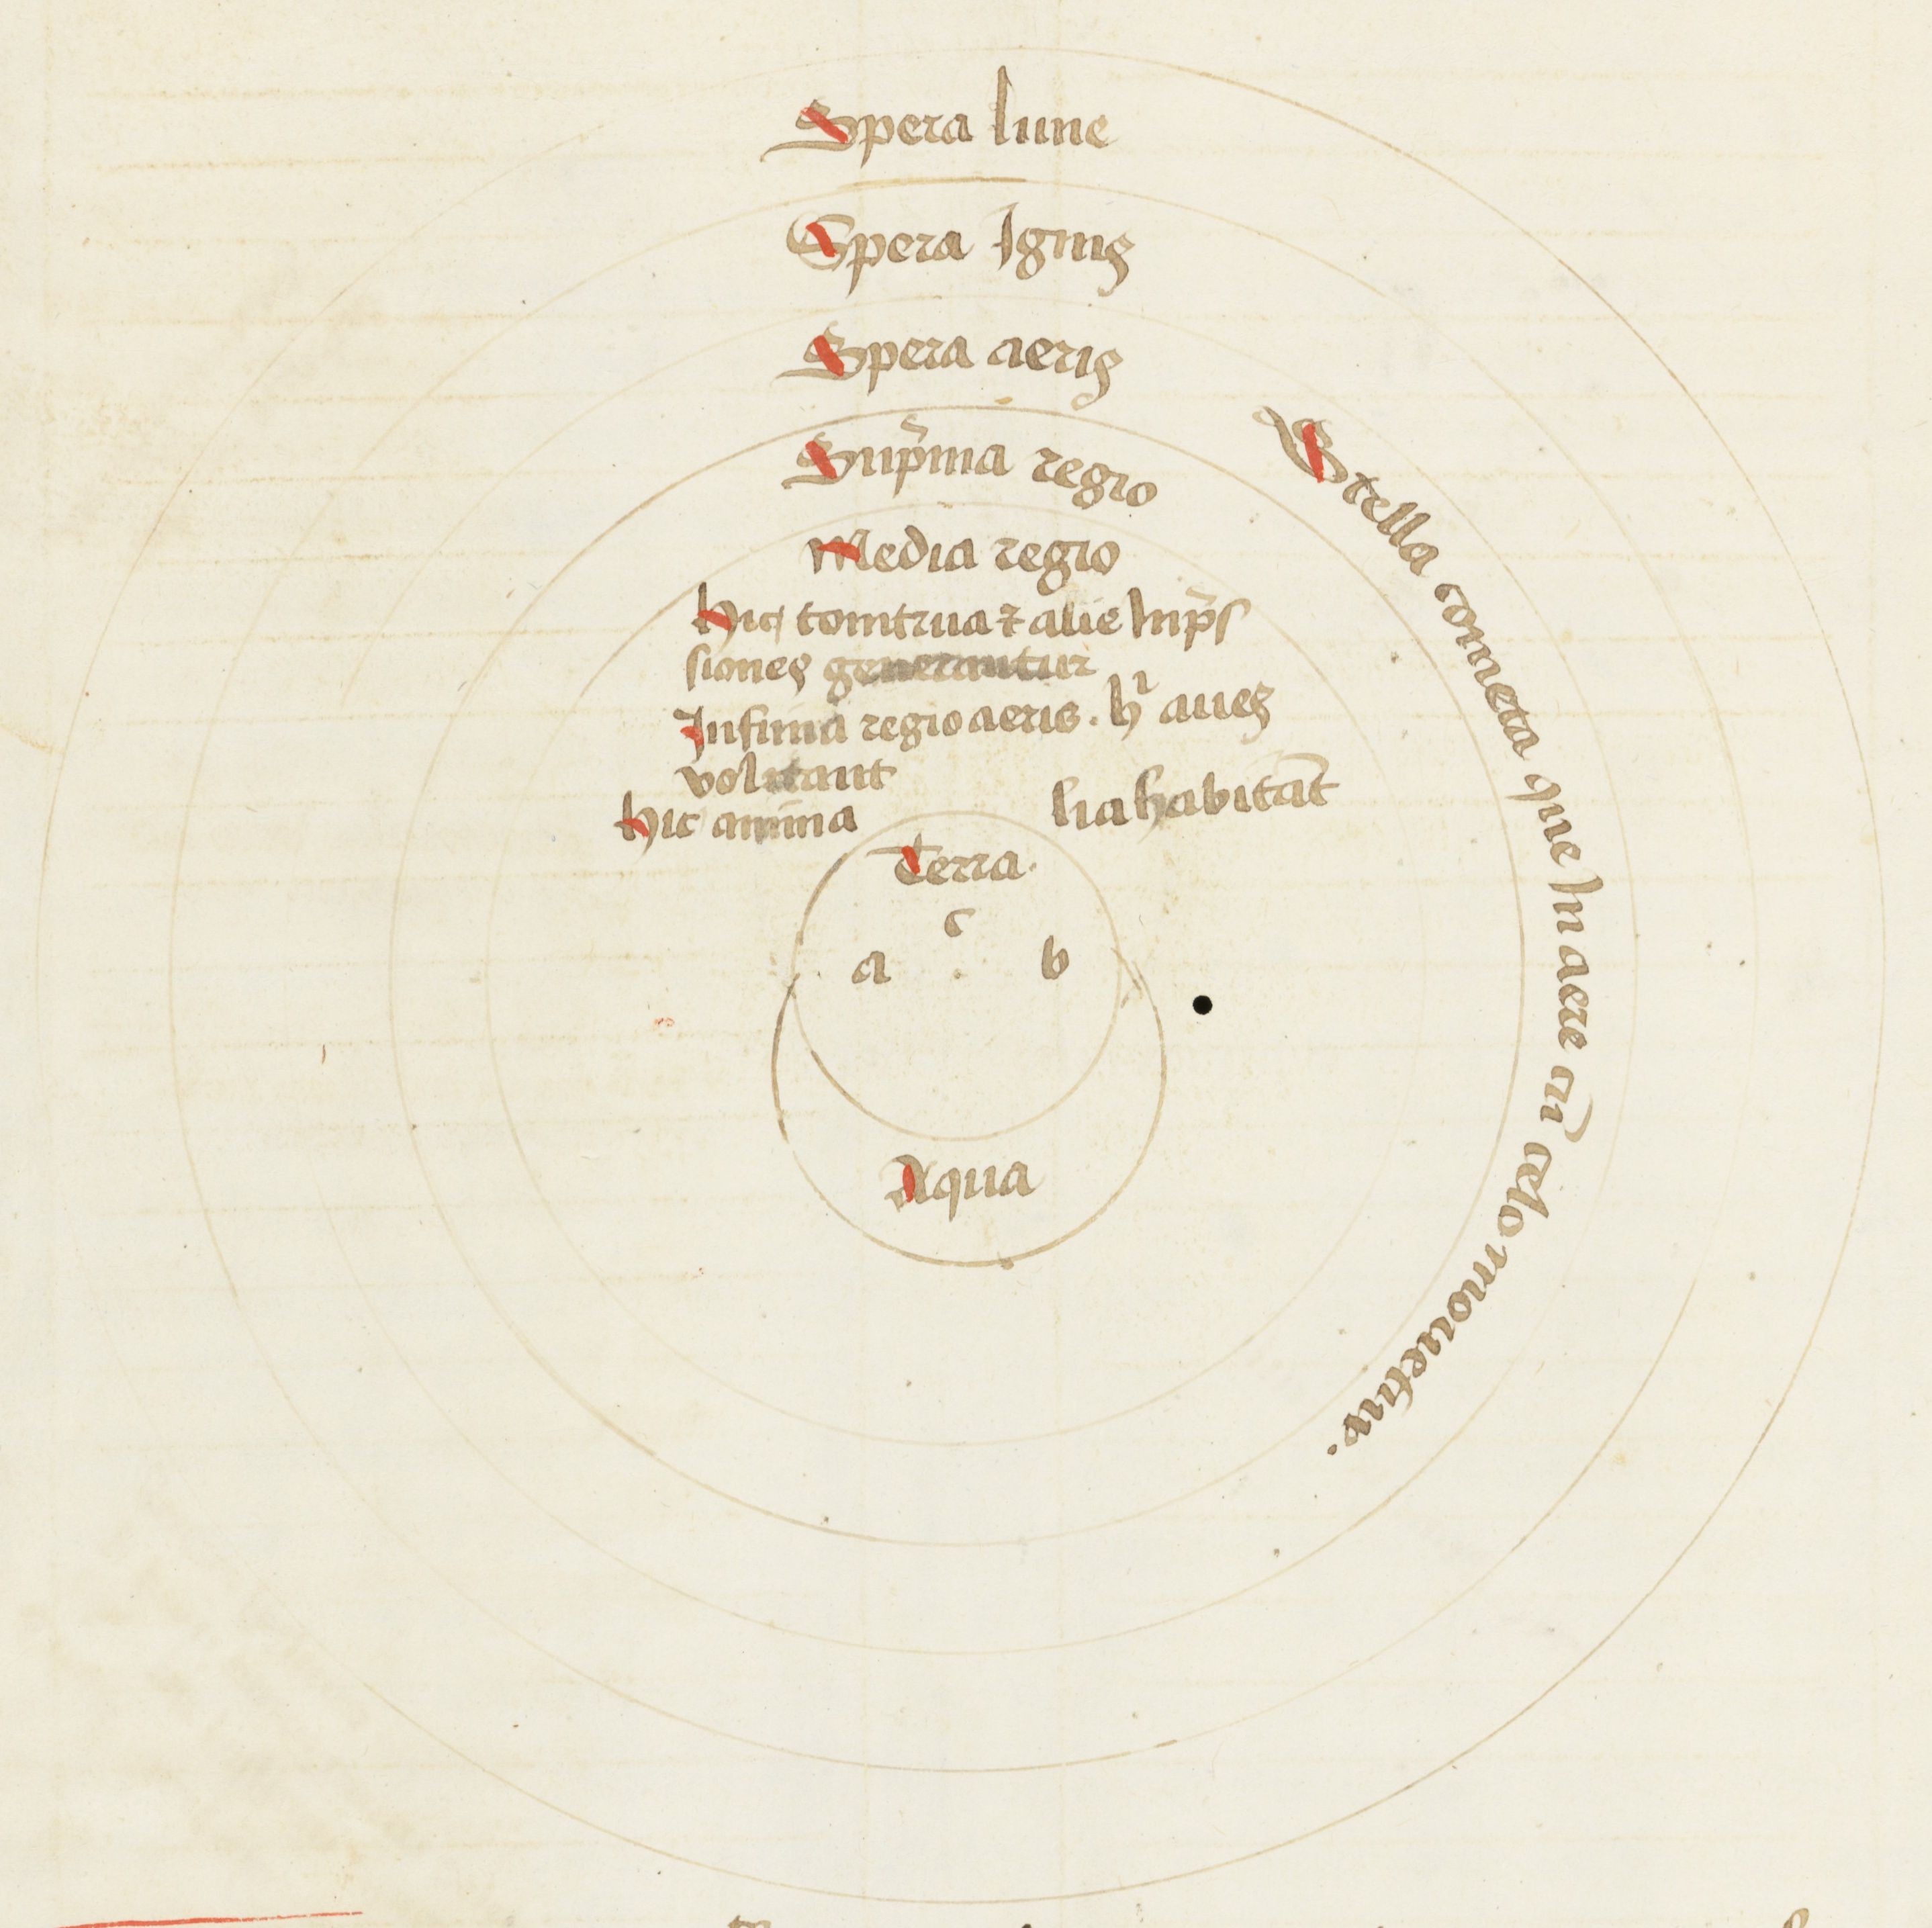 Spera lune
Spera Ignis
Spera aeris
Sup̄ma regio
Media regio
hic tonitrua ⁊ alie Inp̄s
siones generantur
Infima regio aeris . hͥ aues
volitant
hic anima lia habitāt
Terra.
c
a b
Aqua
Stella cometa que In aere cū celo mouetur.